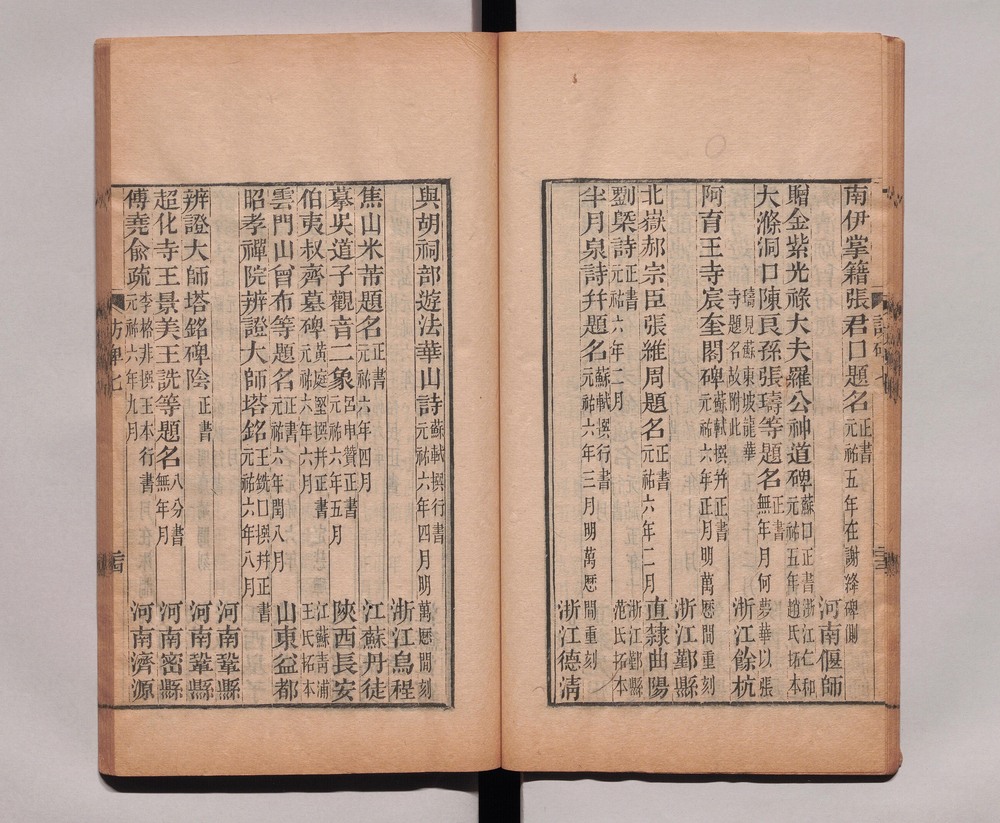 南伊掌籍張君口題名正書元祐五年在謝絳碑側 河南偃師
贈金紫光祿大夫羅公神道碑蘇口正書元祐五年 浙江仁和趙氏拓本
大滌洞口陳良孫張璹等題名正書無年月何夢華以張
璹見蘇東坡龍華寺題名故附此 浙江餘杭
阿育王寺宸奎閣碑蘇軾撰并正書元祐六年正月明萬厯間重刻 浙江鄞縣
北嶽郝宗臣張維周題名正書元祐六年二月 直隸曲陽
劉槩詩正書元祐六年二月 浙江鄞縣范氏拓本
半月泉詩并題名蘇軾撰行書元祐六年三月明萬厯間重刻 浙江德清
與胡祠部遊法華山詩蘇軾撰行書元祐六年四月明萬厯間刻 浙江烏程
焦山米芾題名正書元祐六年四月 江蘇丹徒
摹吳道子觀音二象呂申贊正書元祐六年五月 陜西長安
伯夷叔齊墓碑黃庭堅撰并正書元祐六年六月 江蘇青浦王氏拓本
雲門山曾布等題名正書元祐六年閏八月 山東益都
昭孝禪院辨證大師塔銘王銑口撰并正書元祐六年八月
河南鞏縣
辨證大師塔銘碑陰正書 河南鞏縣
超化寺王景美王詵等題名八分書無年月 河南密縣
傅堯俞疏李格非撰王本行書元祐六年九月 河南濟源